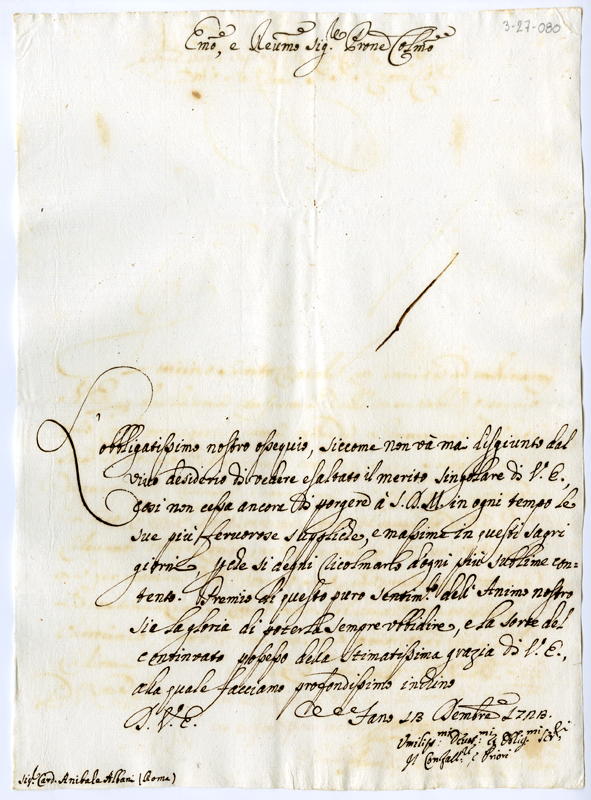 3-27-080
Emõ, e Reũmo Sig.re Prone Colmõ
L'obbligatissimo nostro ossequio, siccome non và mai disgiunto dal
vivo desiderio di vedere esaltato il merito singolare di V.E.,
così non cessa ancora di porgere à S.D.M. in ogni tempo le
sue più fervorose suppliche, e massime in questi sagri
giorni, che si degni ricolmarlo d'ogni più sublime con=
tento. Premio di questo puro sentim.to dell'Animo nostro
sia la gloria di poterla sempre ubbidire, e la sorte del
continuato possesso della stimatissima grazia di V.E.,
alla quale facciamo profondissimo inchino
D. V.E. Fano 13 Dembre
Umiliss.mi Devot.mi ed Obblig.mi
Il Confall.re e Priori
Sig.r Card. Anibale Albani (Roma)